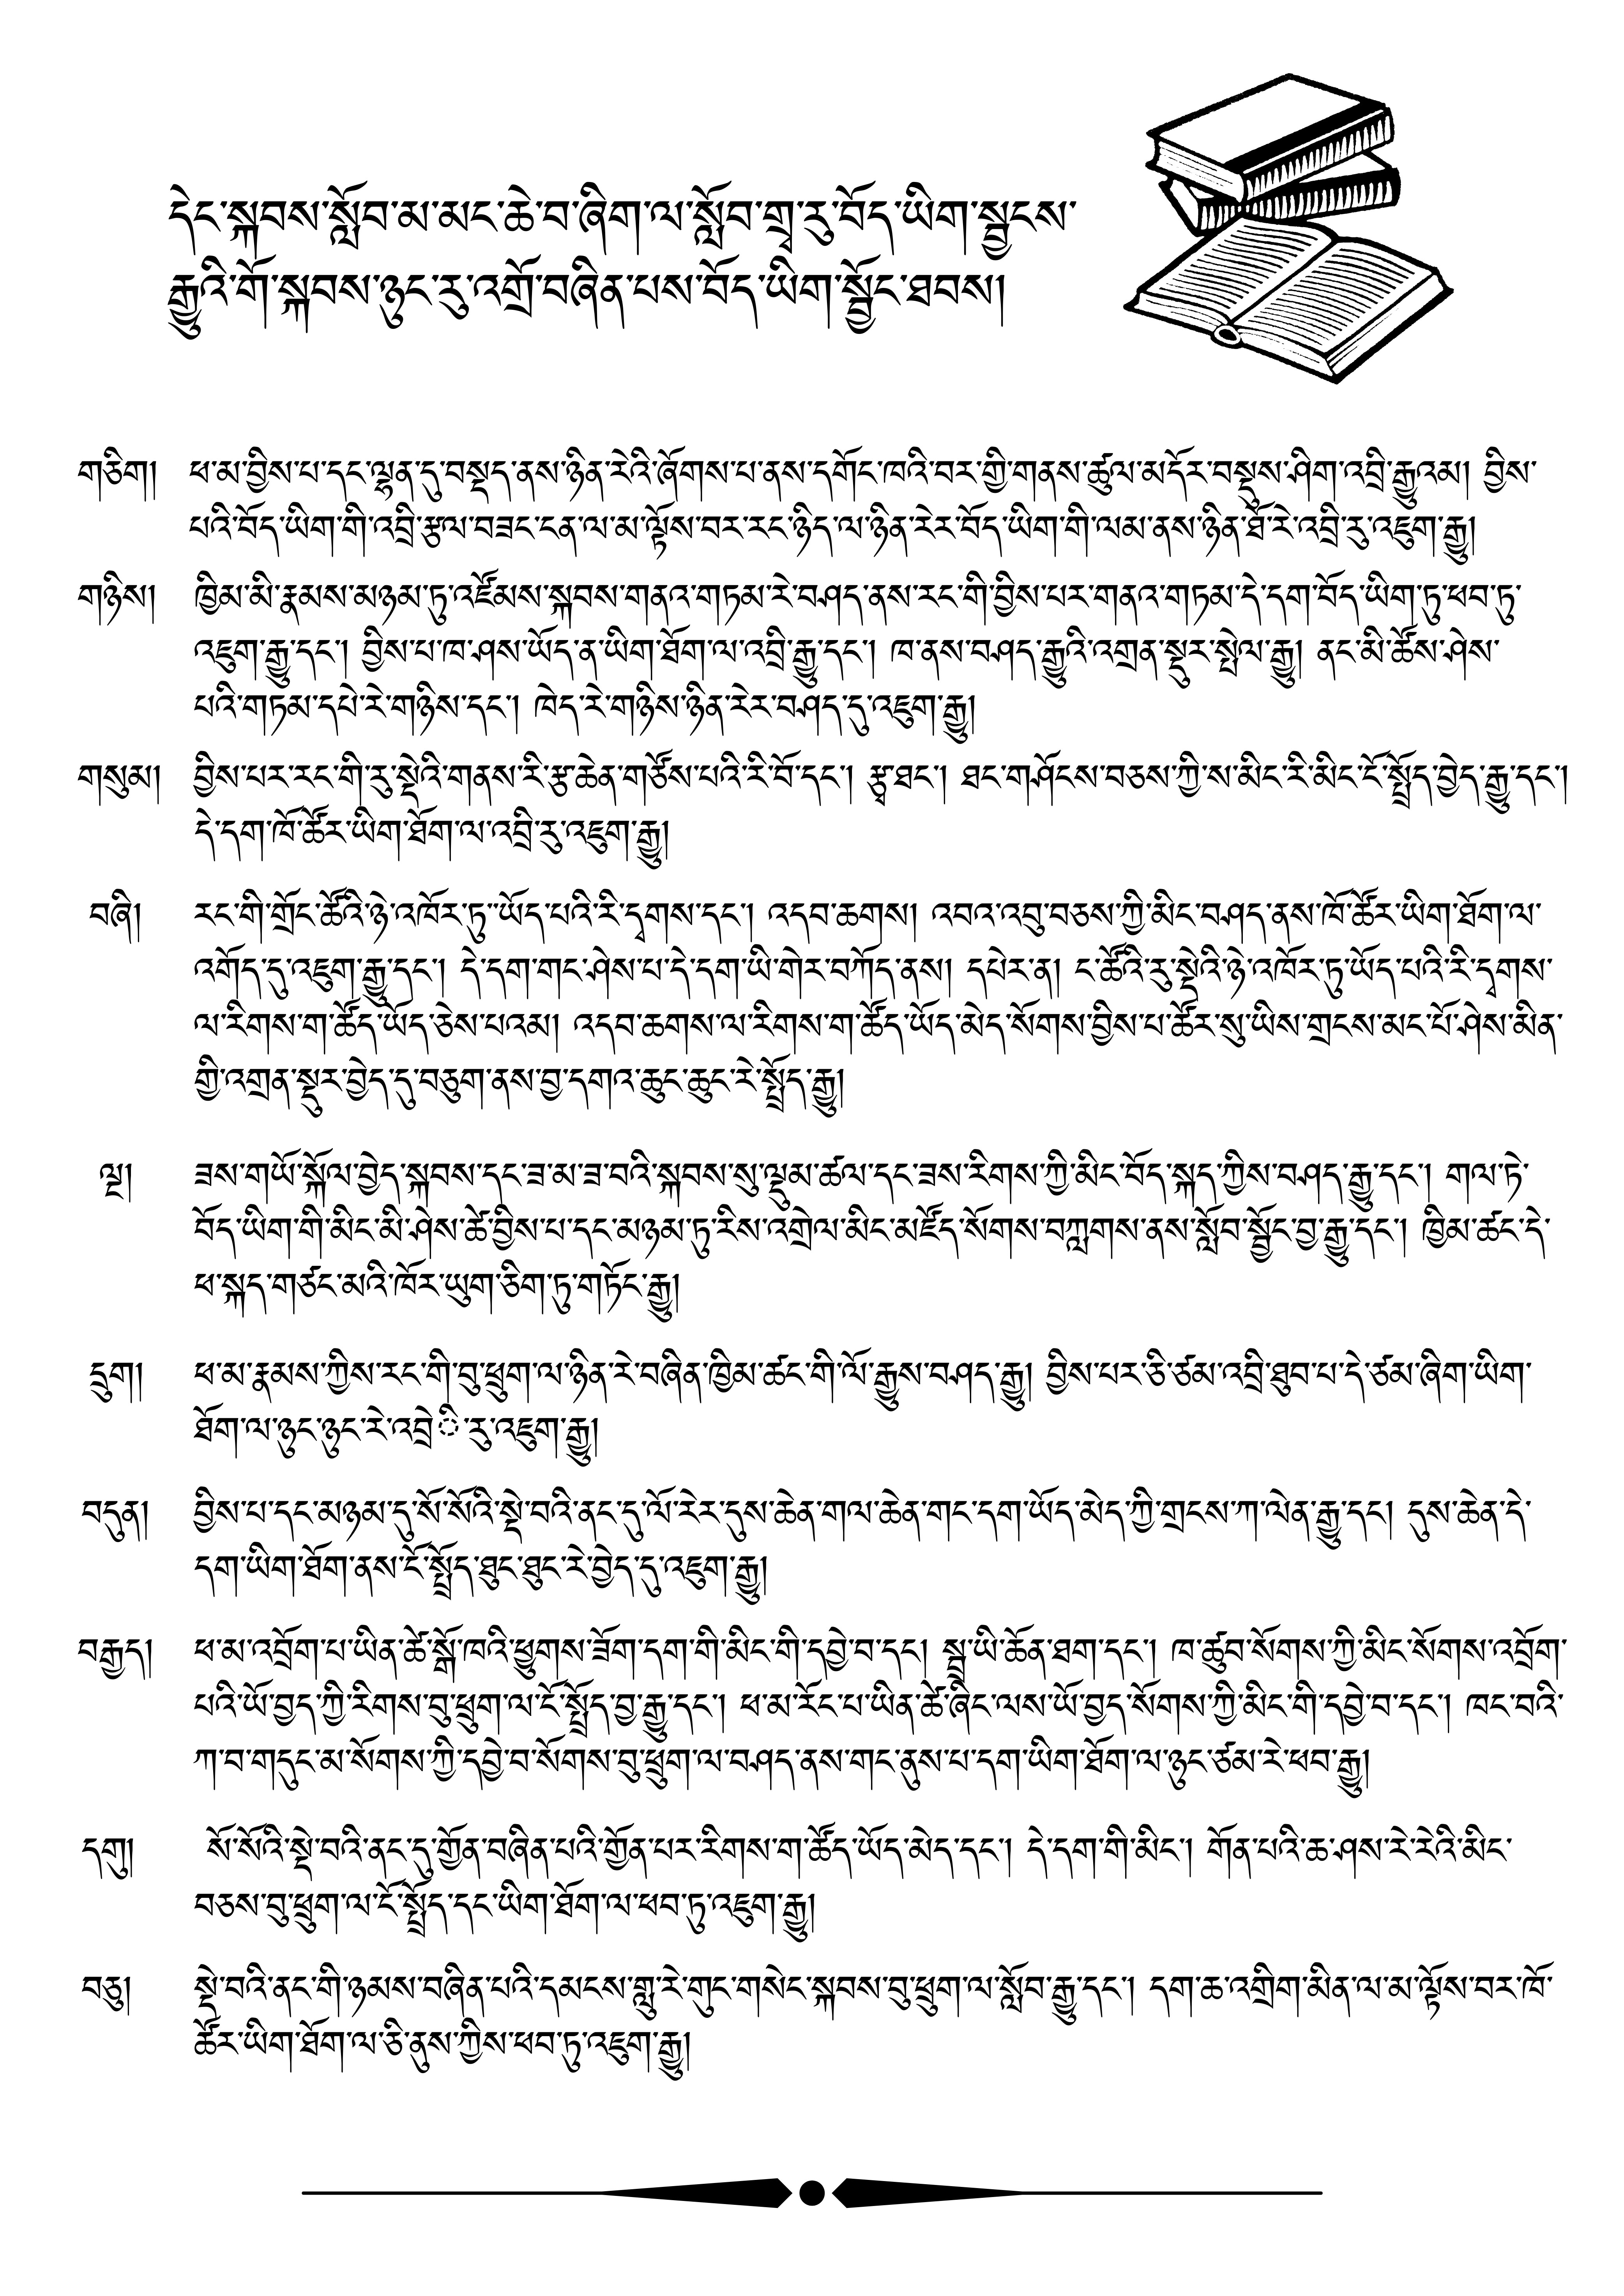 དེང་སྐབས་སློབ་མ་མང་ཆེ་བ་ཞིག་ལ་སློབ་གྲྭ་རུ་བོད་ཡིག་སྦྱངས་
རྒྱུའི་གོ་སྐབས་ཉུང་རུ་འགྲོ་བཞིན་པས་བོད་ཡིག་སྦྱོང་ཐབས།
གཅིག། ཕ་མ་བྱིས་པ་དང་ལྷན་དུ་བསྡད་ནས་ཉིན་རེའི་ཞོགས་པ་ནས་དགོང་ཁའི་བར་གྱི་གནས་ཚུལ་མདོར་བསྡུས་ཤིག་འབྲི་རྒྱུའམ། བྱིས་
པའི་བོད་ཡིག་གི་འབྲི་རྩལ་བཟང་ངན་ལ་མ་ལྟོས་བར་རང་ཉིད་ལ་ཉིན་རེར་བོད་ཡིག་གི་ལམ་ནས་ཉིན་ཐོ་རེ་འབྲི་རུ་འཇུག་རྒྱུ།
གཉིས། ཁྱིམ་མི་རྣམས་མཉམ་ཏུ་འཛོམས་སྐབས་གནའ་གཏམ་རེ་བཤད་ནས་རང་གི་བྱིས་པར་གནའ་གཏམ་དེ་དག་བོད་ཡིག་ཏུ་ཕབ་ཏུ་
འཇུག་རྒྱུ་དང་། བྱིས་པ་ཁ་ཤས་ཡོད་ན་ཡིག་ཐོག་ལ་འབྲི་རྒྱུ་དང་། ཁ་ནས་བཤད་རྒྱུའི་འགྲན་སྡུར་སྤེལ་རྒྱུ། ནང་མི་ཚོས་ཤེས་
པའི་གཏམ་དཔེ་རེ་གཉིས་དང་། ཁེད་རེ་གཉིས་ཉིན་རེར་བཤད་དུ་འཇུག་རྒྱུ།
གསུམ། བྱིས་པར་རང་གི་རུ་སྡེའི་གནས་རི་རྩ་ཆེན་གཙོས་པའི་རི་བོ་དང་། རྩྭ་ཐང་། ཐང་གཤོངས་བཅས་ཀྱི་ས་མིང་རི་མིང་ངོ་སྤྲོད་བྱེད་རྒྱུ་དང་།
དེ་དག་ཁོ་ཚོར་ཡིག་ཐོག་ལ་འབྲི་རུ་འཇུག་རྒྱུ།
བཞི། རང་གི་གྲོང་ཚོའི་ཉེ་འཁོར་ཏུ་་ཡོད་པའི་རི་དྭགས་དང་། འདབ་ཆགས། འབའ་འབུ་བཅས་ཀྱི་མིང་བཤད་ནས་ཁོ་ཚོར་ཡིག་ཐོག་ལ་
འགོད་དུ་འཇུག་རྒྱུ་དང་། དེ་དག་གང་ཤེས་པ་དེ་དག་ཡི་གེར་བཀོད་ནས། དཔེར་ན། ང་ཚོའི་རུ་སྡེའི་ཉེ་འཁོར་ཏུ་ཡོད་པའི་རི་དྭགས་
ལ་རིགས་ག་ཚོད་ཡོད་ཅེས་པའམ། འདབ་ཆགས་ལ་རིགས་ག་ཚོད་ཡོད་མེད་སོགས་བྱིས་པ་ཚོར་སུ་ཡིས་གྲངས་མང་པོ་ཤེས་མིན་
གྱི་འགྲན་སྡུར་བྱེད་དུ་བཅུག་ནས་བྱ་དགའ་ཆུང་ཆུང་རེ་སྤྲོད་རྒྱུ།
ལྔ། ཟས་གཡོ་སྐོལ་བྱེད་སྐབས་དང་ཟ་མ་ཟ་བའི་སྐབས་སུ་ལྡུམ་ཚལ་དང་ཟས་རིགས་ཀྱི་མིང་བོད་སྐད་ཀྱིས་བཤད་རྒྱུ་དང་། གལ་ཏེ་
བོད་ཡིག་གི་མིང་མི་ཤེས་ཚེ་བྱིས་པ་དང་མཉམ་ཏུ་རིས་འགྲེལ་མིང་མཛོད་སོགས་བཀླགས་ནས་སློབ་སྦྱོང་བྱ་རྒྱུ་དང་། ཁྱིམ་ཚང་དེ་
ཕ་སྐད་གཙང་མའི་ཁོར་ཡུག་ཅིག་ཏུ་གཏོང་རྒྱུ།
དྲུག། ཕ་མ་རྣམས་ཀྱིས་རང་གི་བུ་ཕྲུག་ལ་ཉིན་རེ་བཞིན་ཁྱིམ་ཚང་གི་ལོ་རྒྱུས་བཤད་རྒྱུ། བྱིས་པར་ཅི་ཙམ་འབྲི་ཐུབ་པ་དེ་ཙམ་ཞིག་ཡིག་
ཐོག་ལ་ཉུང་ཉུང་རེ་འབྲེ ི་རུ་འཇུག་རྒྱུ།
བདུན། བྱིས་པ་དང་མཉམ་དུ་སོ་སོའི་སྡེ་བའི་ནང་དུ་ལོ་རེར་དུས་ཆེན་གལ་ཆེན་གང་དག་ཡོད་མེད་ཀྱི་གྲངས་ཀ་ལེན་རྒྱུ་དང། དུས་ཆེན་དེ་
དག་ཡིག་ཐོག་ནས་ངོ་སྤྲོད་ཐུང་ཐུང་རེ་བྱེད་དུ་འཇུག་རྒྱུ།
བརྒྱད། ཕ་མ་འབྲོག་པ་ཡིན་ཚེ་སྒོ་ཁའི་ཕྱུགས་ཟོག་དག་གི་མིང་གི་དབྱེ་བ་དང། སྦྲ་ཡི་ཆོན་ཐག་དང་། ཁ་ཚུབ་སོགས་ཀྱི་མིང་སོགས་འབྲོག་
པའི་ཡོ་བྱད་ཀྱི་རིགས་བུ་ཕྲུག་ལ་ངོ་སྤྲོད་བྱ་རྒྱུ་དང་། ཕ་མ་རོང་པ་ཡིན་ཚེ་ཞིང་ལས་ཡོ་བྱད་སོགས་ཀྱི་མིང་གི་དབྱེ་བ་དང་། ཁང་བའི་
ཀ་བ་གདུང་མ་སོགས་ཀྱི་དབྱེ་བ་སོགས་བུ་ཕྲུག་ལ་བཤད་ནས་གང་ནུས་པ་དག་ཡིག་ཐོག་ལ་ཉུང་ཙམ་རེ་ཕབ་རྒྱུ།
དགུ། སོ་སོའི་སྡེ་བའི་ནང་དུ་གྱོན་བཞིན་པའི་གྱོན་པར་རིགས་ག་ཚོད་ཡོད་མེད་དང་། དེ་དག་གི་མིང་། གོན་པའི་ཆ་ཤས་རེ་རེའི་མིང་
བཅས་བུ་ཕྲུག་ལ་ངོ་སྤྲོད་དང་ཡིག་ཐོག་ལ་ཕབ་ཏུ་འཇུག་རྒྱུ།
བཅུ། སྡེ་བའི་ནང་གི་ཉམས་བཞིན་པའི་དམངས་གླུ་རེ་གུང་གསེང་སྐབས་བུ་ཕྲུག་ལ་སློབ་རྒྱུ་དང་། དག་ཆ་འགྲིག་མིན་ལ་མ་ལྟོས་བར་ཁོ་
ཚོར་ཡིག་ཐོག་ལ་ཅི་ནུས་ཀྱིས་ཕབ་ཏུ་འཇུག་རྒྱུ།